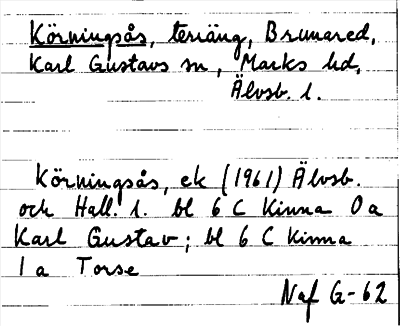 Körningsås, teriäng, Brunared,
Karl Gustavs sn, Marks hd,
Älvsb. l.
Körningsås, ek (1961) Älvsb.
och Hall. l. bl 6 C Kinna 0 a
Karl Gustav; bl 6 C Kinna
1 a Torse
Naf G-62